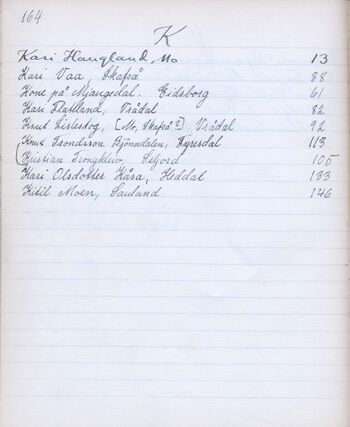 164
K
Kari Haugland, Mo 13
Kari Vaa, Skafså 38
Kone på Mjangedal. Eidsborg 61
Kari Flatland, Vrådal 82
Knut Lislestog, [Mo, Skafså?], Vrådal 92
Knut Tsondrson Bjönndalen, Fyresdal 113
(Kristian Trongkleiv, Seljord 105
Kari Olsdotter Kåsa, Heddal 133
Kitil Moen, Sauland 146